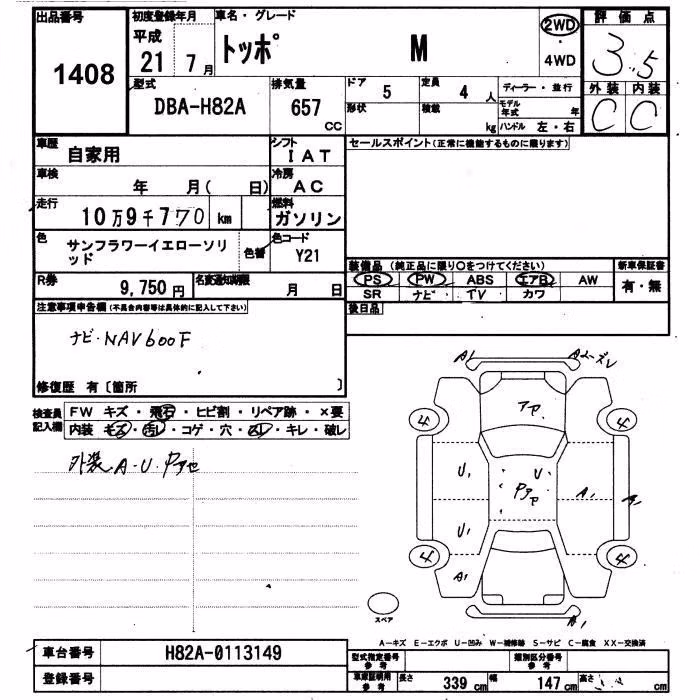 出品番号 初度登録年月 車名・グレード 評価点
1408 平成 21 7月 トッポ M 2WD 4WD 3.5
型式 排気量 ドア 5 定員 4 人 ディーラー・並行 外装 内装
DBA-H82A 657 CC 形状 積載 kg モデル年式 年 C C
ハンドル 左・右
車歴 自家用 シフト IAT セールスポイント(正常に機能するものに限ります)
車検 年 月( 日) 冷房 AC
走行 10万9千770 km 燃料 ガソリン
色 サンフラワーイエローソリッド 色替 色コード Y21
装備品 (純正品に限り○をつけてください) 新車保証書
R券 9,750円 名変通知期限 月 日 PS PW ABS エアB AW 有・無
SR ナビ TV カワ
注意事項申告欄(不具合内容等は具体的に記入して下さい) 後日品
ナビ・NAV600F
修復歴 有〔箇所 〕
検査員記入欄 FW キズ・飛石・ヒビ割・リペア跡・×要
内装 キズ・汚レ・コゲ・穴・スレ・キレ・破レ
外装 A.U.
A1
4 4
U1 U
A1
U1
4 4
A1
A1
スペア
A-キズ E-エクボ U-凹み W-補修跡 S-サビ C-腐食 XX-交換済
車台番号 H82A-0113149 型式指定番号 参考 類別区分番号 参考
登録番号 車庫証明用 参考 長さ 339 cm 幅 147 cm 高さ cm